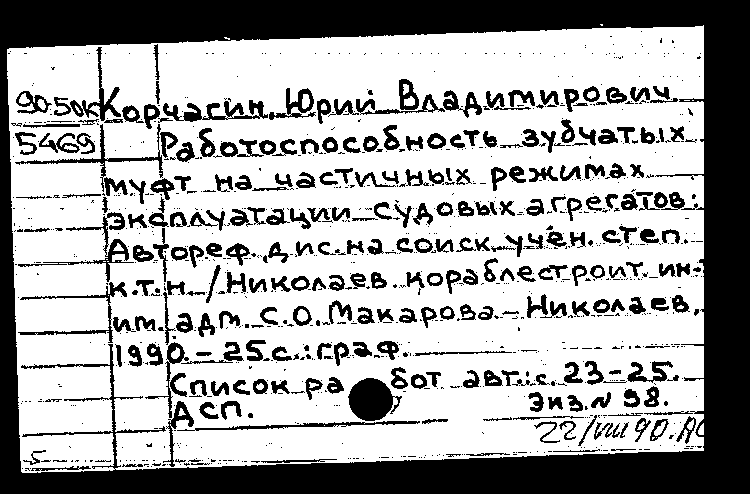 90-50к Корчагин, Юрий Владимирович
5469 Работоспособность зубчатых
муфт на частичных режимах
эксплуатации судовых агрегатов:
Автореф. дис. на соиск. учен. степ.
к.т.н. / Николаев. кораблестроит. ин-т
им. адм. С.О. Макарова. - Николаев,
1990. - 25 с.: граф.
Список работ авт.: с. 23-25.
ДСП. Экз. N 98.
22/VIII 90.
5